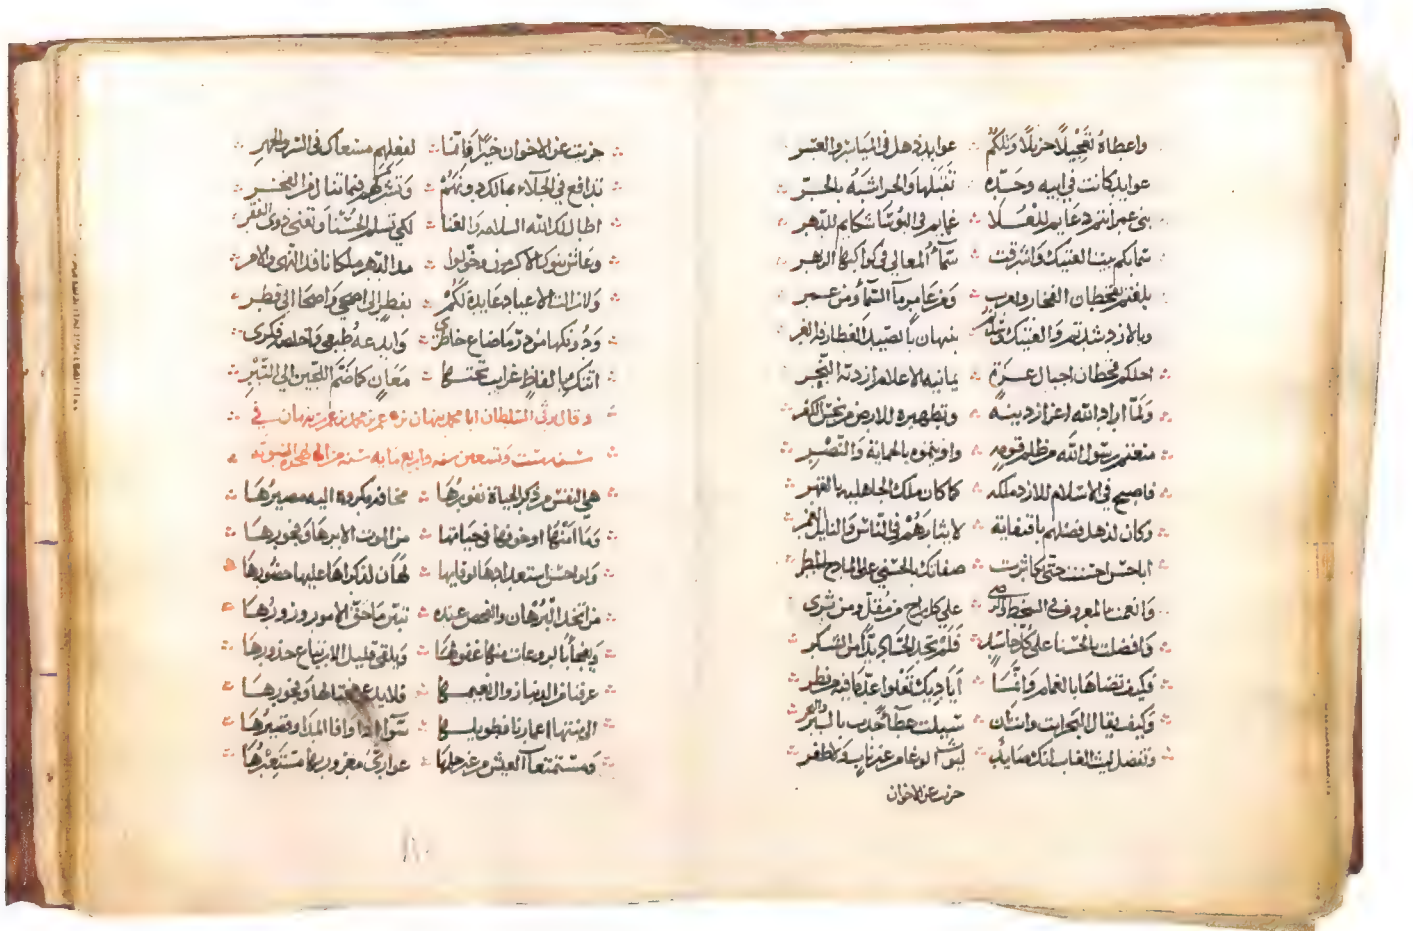 واعطاه تعجيلا جزيلا وتلكم عوايد ذهل في المياسر والعسر
عوايد كانت في ابيه وجده تقبلها والحر اشبه بالحر
بني عمر انتم دعايم للعلا غمايم في البوسا شكايم للدهر
سمابكم بيت العتيك واشرقت سماء المعالي في كواكبها الزهر
بلغتم بقحطان الفخار ويعرب ومن عامر ماء السماء ومن عمر
وبالازد شدتم والعتيك نبهان بالصيد الغطارفة الغر
احلكم قحطان اجبال عزة يمانية الاعلام ازدية النجر
ولما اراد الله اعزاز دينه وتطهيره للارض من نجس الكفر
منعتم رسول الله من ظلم قومه واويتموه بالحماية والنصر
فاصبح في الاسلام للازد ملكه كما كان ملك الجاهلية بالقهر
وكان لذهل فضلهم باقتفايه لاثارهم في الناس والنايل الغمر
اباحسن احسنت حتى تكاثرت صفاتك بالحسنى على المادح المطر
وانعمت بالمعروف في السخط والرضى على كل راج من مقل ومن مثرى
وافضلت بالحسنا على كل حاسد فلم يجد الحساد بدا من الشكر
فكيف تضاها بالغمام وانما اياديك تعلوا عد ما فيه من قطر
وكيف يقال البحر انت وانت ان سبلت عطاء جدت بالبر والبحر
وتفضل ليث الغاب انك صايد ليوث الوغا من غير ناب ولا ظفر
حزيت عن الاخوان
حزيت عن الاخوان خيرا فانما لفعلهم مسعاك في السر والجهر
تدافع في الجلاء بمالك دونهم وتشركهم فيما تنال من الفخر
اطال لك الله السلامة والغنا لكي تسلم الحسنا وتغني ذوي الفقر
وعاش بنوك الاكرمون وخولوا مدا الدهر ملكا نافذ النهي والامر
ولا زالت الاعياد عايدة لكم بفطر الى اضحى واضحا الى فطر
ودونكها من در ما صاغ خاطري وابدعه طبعي واخلصه فكري
اتتك بالفاظ غراب تحتها معان كما ضم اللجين الى التبر
وقال يرثي السلطان ابا محمد نبهان بن عمر بن محمد بن عمر بن نبهان في
سنة ست وتسعين سنة واربع مايه سنة من الهجرة النبويه
هي النفس من ذكر الحياة نفورها مخافة مكروه اليه مصيرها
وما امنها او خوفها في حياتها من الموت الا برها وفجورها
ولو احسن استعدادها لوفاتها لهان لذكراها عليها حضورها
من اتخذ البرهان والفحص عنده تبين ما حق الامور وزورها
ويفجأ بالروعات منها غفولها ويلقى قليل الارتياع حذورها
عرفنا من الدنيا زوال نعيمها فلا يدعي اغتالها وفجورها
الى منتها اعمارنا فطويلها سواء اذا وافا المدا وقصيرها
ومستمتعا العيش من غير حلها عواري مغرور بها مستعيرها